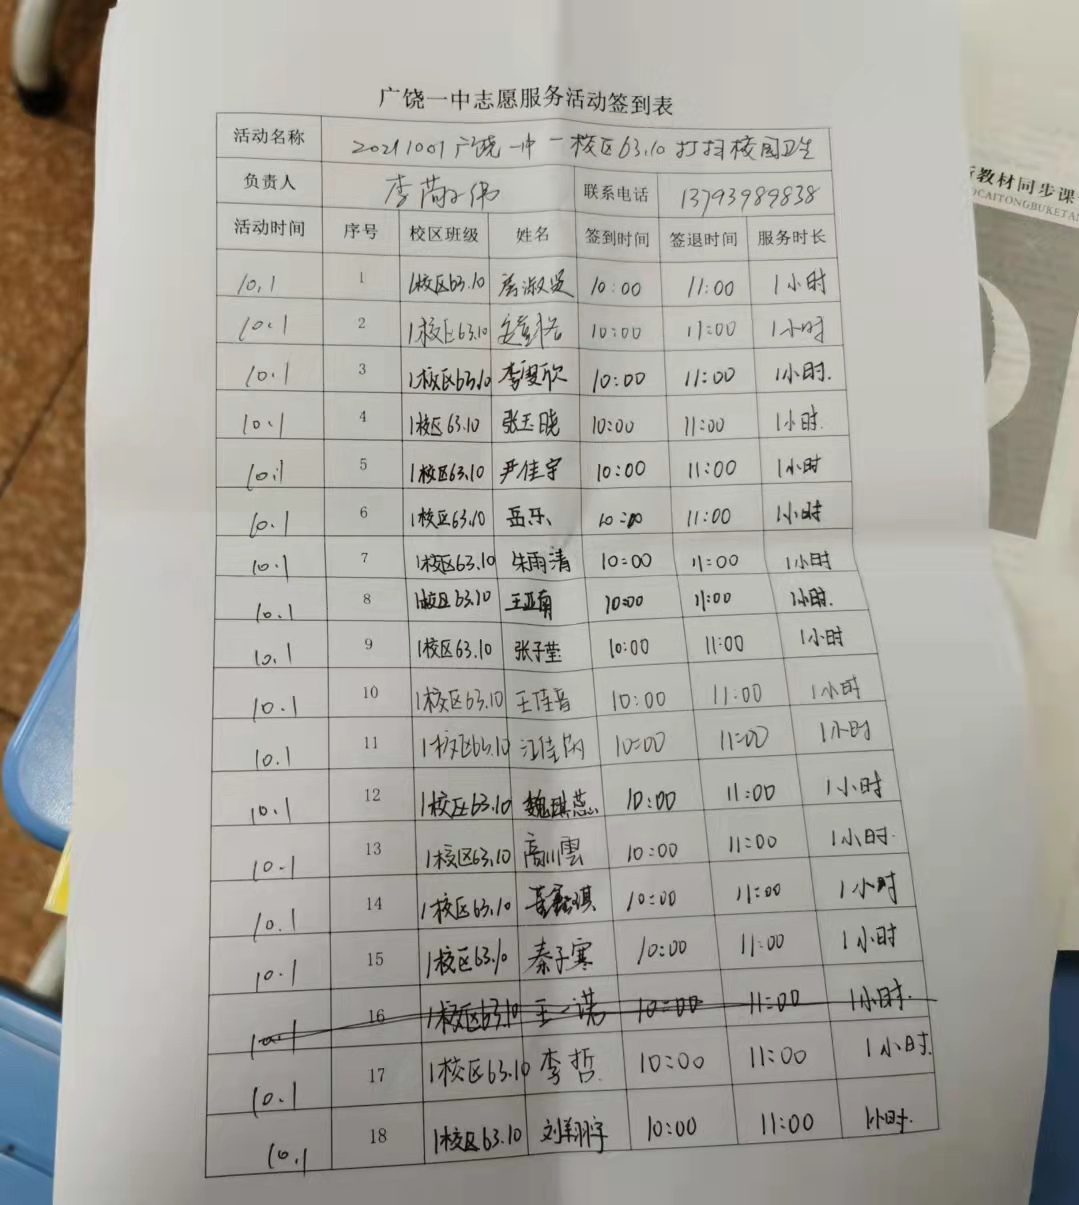 广饶一中志愿服务活动签到表
活动名称 20211001广饶一中一校区63.10打扫校园卫生
负责人 李 联系电话 13793989838
活动时间 序号 校区班级 姓名 签到时间 签退时间 服务时长
10.1 1 1校区63.10 10:00 11:00 1小时
10.1 2 1校区63.10 10:00 11:00 1小时
10.1 3 1校区63.10 李雯欣 10:00 11:00 1小时.
10.1 4 1校区63.10 张玉晓 10:00 11:00 1小时.
10.1 5 1校区63.10 尹佳宇 10:00 11:00 1小时
10.1 6 1校区63.10 岳乐 10:00 11:00 1小时
10.1 7 1校区63.10 朱雨清 10:00 11:00 1小时
10.1 8 1校区63.10 王亚南 10:00 11:00 1小时.
10.1 9 1校区63.10 张子莹 10:00 11:00 1小时
10.1 10 1校区63.10 王佳音 10:00 11:00 1小时
10.1 11 1校区63.10 10:00 11:00 1小时
10.1 12 1校区63.10 魏琪蕊 10:00 11:00 1小时
10.1 13 1校区63.10 高川雲 10:00 11:00 1小时.
10.1 14 1校区63.10 10:00 11:00 1小时
10.1 15 1校区63.10 秦子寒 10:00 11:00 1小时
10.1 16 1校区63.10 王一诺 10:00 11:00 1小时.
10.1 17 1校区63.10 李哲 10:00 11:00 1小时.
10.1 18 1校区63.10 刘翔宇 10:00 11:00 1小时.
教材同步课